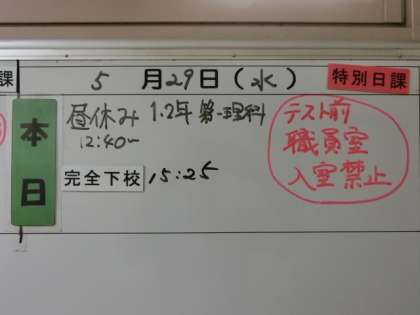 課
5 月 29 日 ( 水 )
特別日課
本日
昼休み 1.2年 第一理科
12:40~
完全下校 15:25
テスト前
職員室
入室禁止